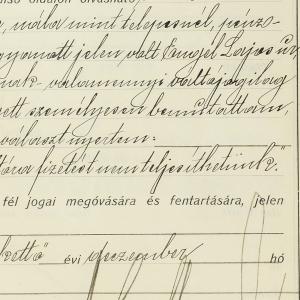 első oldalon olvasható
, mála mint telepesnél, pénz-
ugyanott jelen volt Engel Lajos úr
nak valamennyi váltójogilag
ett személyesen bemutattam,
választ nyertem:
fizetést nem teljesíthetünk."
fél jogai megóvására és fentartására, jelen
kettő évi deczember hó